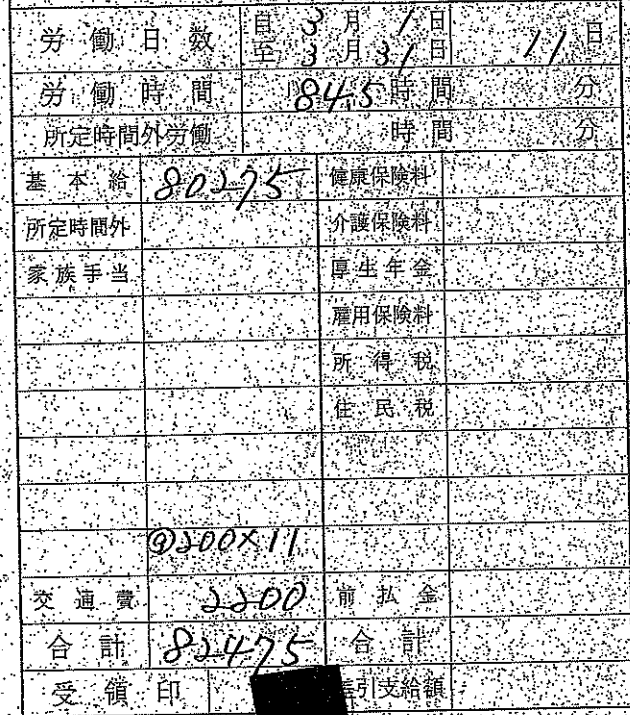 労働日数 自 3月 1日 11日
至 3月 31日
労働時間 84.5時間 分
所定時間外労働 時間 分
基本給 80275 健康保険料
所定時間外 介護保険料
家族手当 厚生年金
雇用保険料
所得税
住民税
@200×11
交通費 2200 前払金
合計 82475 合計
受領印 引支給額